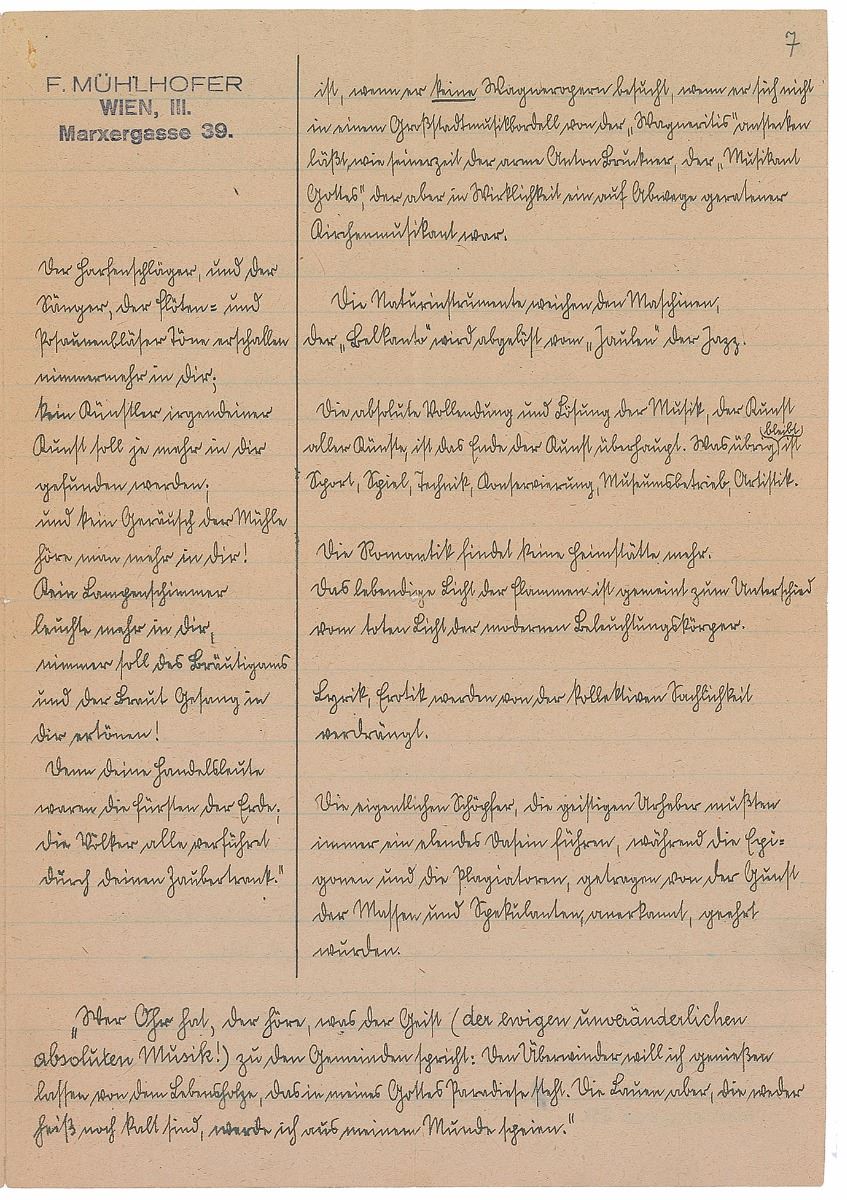 7
F. MÜHLHOFER
WIEN, III.
Marxergasse 39.
Der Harfenschläger, und der
Sänger, der Flöten= und
Posaunenbläser Töne erschallen
nimmermehr in dir;
kein Künstler irgendeiner
Kunst soll je mehr in dir
gefunden werden;
und kein Geräusch der Mühle
höre man mehr in dir!
Kein Lampenschimmer
leuchte mehr in dir,
nimmer soll des Bräutigams
und der Braut Gesang in
dir ertönen!
Denn deine Handelsleute
waren die Fürsten der Erde;
die Völker alle verführt
durch deinen Zaubertrank."
ist, wenn er keine Wagneropern besucht, wenn er sich nicht
in einem Großstadtmusikbordell von der „Wagneritis" anstecken
läßt, wie seinerzeit der arme Anton Bruckner, der „Musikant
Gottes", der aber in Wirklichkeit ein auf Abwege geratener
Kirchenmusikant war.
Die Naturinstrumente weichen den Maschinen,
der „Belkanto" wird abgelöst vom „Jaulen" der Jazz.
Die absolute Vollendung und Lösung der Musik, der Kunst
aller Künste, ist das Ende der Kunst überhaupt. Was übrig bleibt ist
Sport, Spiel, Technik, Konservierung, Museumsbetrieb, Artistik.
Die Romantik findet keine Heimstätte mehr.
Das lebendige Licht der Flammen ist gemeint zum Unterschied
vom toten Licht der modernen Beleuchtungskörper.
Lyrik, Erotik werden von der kollektiven Sachlichkeit
verdrängt.
Die eigentlichen Schöpfer, die geistigen Urheber mußten
immer ein elendes Dasein führen, während die Epi=
gonen und die Plagiatoren, getragen von der Gunst
der Massen und Spekulanten, anerkannt, geehrt
wurden.
„Wer Ohr hat, der höre, was der Geist (der ewigen unveränderlichen
absoluten Musik!) zu den Gemeinden spricht: Den Überwinder will ich genießen
lassen von dem Lebensholze, das in meines Gottes Paradiese steht. Die Lauen aber, die weder
heiß noch kalt sind, werde ich aus meinem Munde speien."